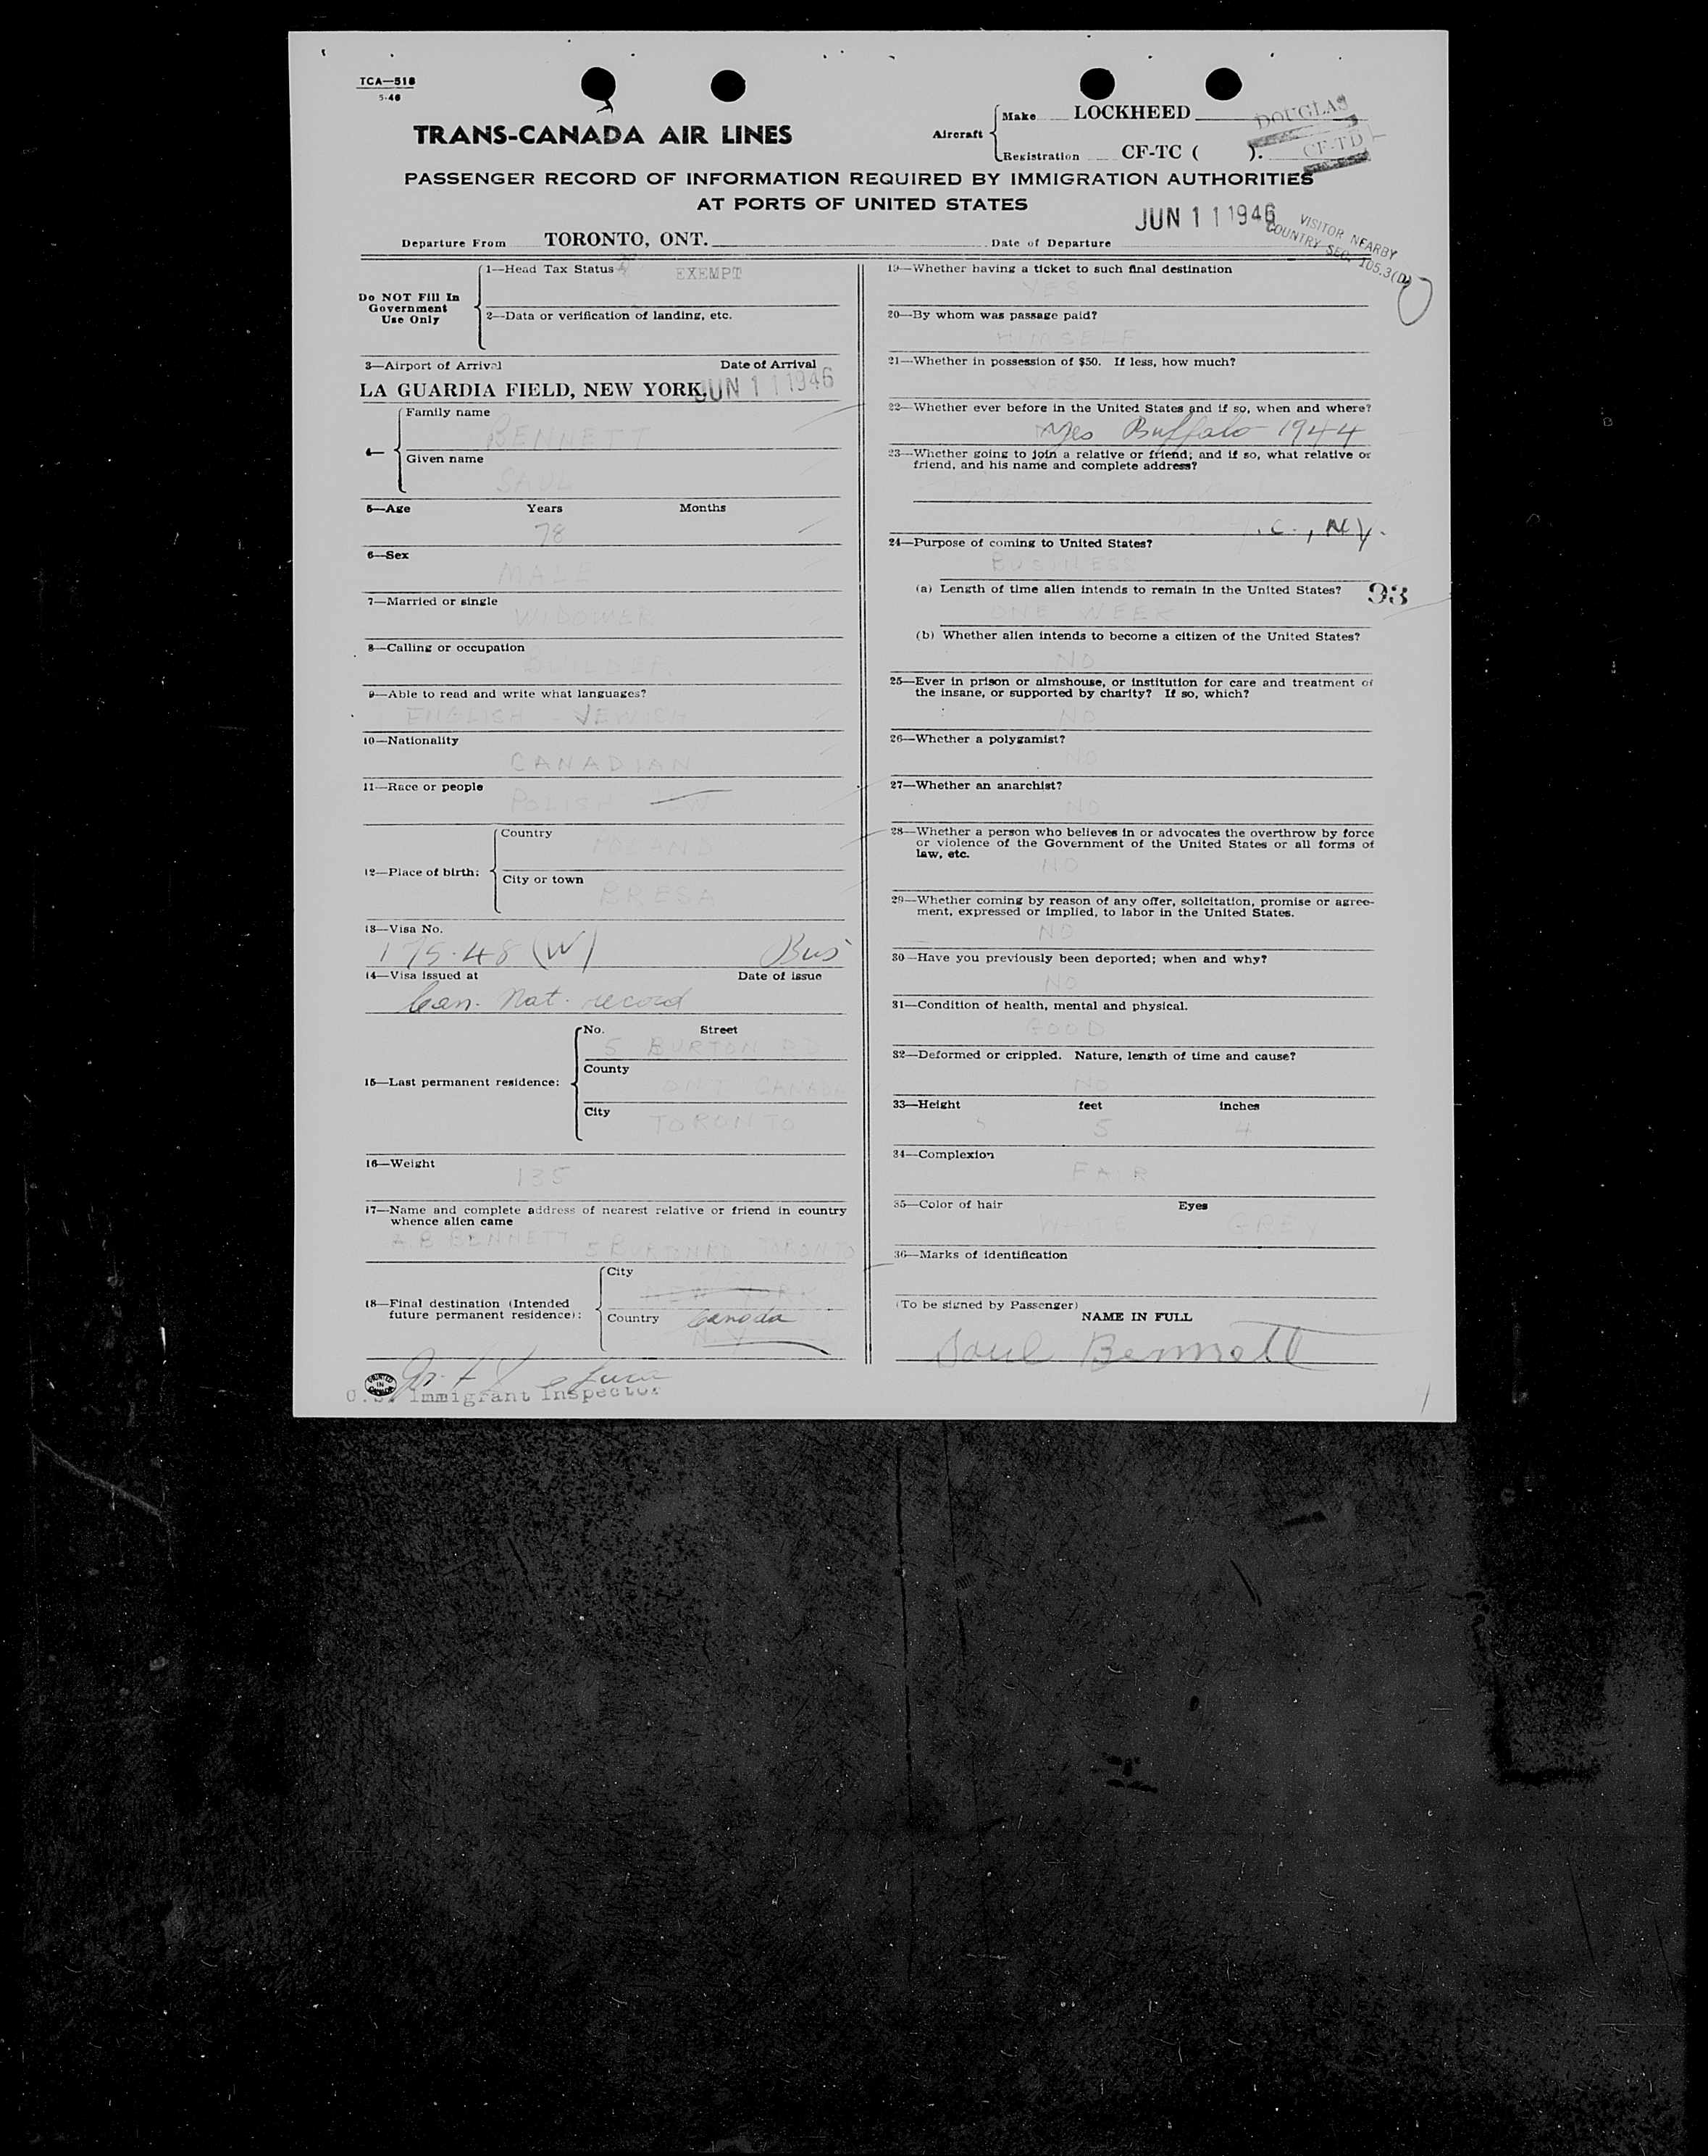 TCA—518
5-46
TRANS-CANADA AIR LINES
Aircraft
Make LOCKHEED
DOUGLAS
Registration CF-TC ( ).
CF-TD
PASSENGER RECORD OF INFORMATION REQUIRED BY IMMIGRATION AUTHORITIES
AT PORTS OF UNITED STATES
JUN 11 1946
VISITOR NEARBY
COUNTRY SEC. 105.3(D)
Departure From TORONTO, ONT. Date of Departure
Do NOT Fill In
Government
Use Only
1—Head Tax Status EXEMPT
2—Data or verification of landing, etc.
3—Airport of Arrival Date of Arrival
LA GUARDIA FIELD, NEW YORK. JUN 11 1946
4—
Family name
BENNETT
Given name
SAUL
5—Age Years Months
78
6—Sex
MALE
7—Married or single
WIDOWER
8—Calling or occupation
BUILDER
9—Able to read and write what languages?
ENGLISH - JEWISH
10—Nationality
CANADIAN
11—Race or people
POLISH
12—Place of birth:
Country
POLAND
City or town
BRESA
13—Visa No.
175.48 (W) Bus
14—Visa issued at Date of issue
Can. Nat. record
15—Last permanent residence:
No. Street
5 BURTON RD
County
ONT CANADA
City
TORONTO
16—Weight
135
17—Name and complete address of nearest relative or friend in country
whence alien came
A.B BENNETT 5 BURTON RD TORONTO
18—Final destination (Intended
future permanent residence):
City
NEW YORK
Country Canada
N.Y
PRINTED IN CANADA
U.S. Immigrant Inspector
19—Whether having a ticket to such final destination
YES
20—By whom was passage paid?
HIMSELF
21—Whether in possession of $50. If less, how much?
YES
22—Whether ever before in the United States and if so, when and where?
Yes Buffalo 1944
23—Whether going to join a relative or friend; and if so, what relative or
friend, and his name and complete address?
.C., N.Y.
24—Purpose of coming to United States?
BUSINESS
(a) Length of time alien intends to remain in the United States? 93
ONE WEEK
(b) Whether alien intends to become a citizen of the United States?
NO
25—Ever in prison or almshouse, or institution for care and treatment of
the insane, or supported by charity? If so, which?
NO
26—Whether a polygamist?
NO
27—Whether an anarchist?
NO
28—Whether a person who believes in or advocates the overthrow by force
or violence of the Government of the United States or all forms of
law, etc.
NO
29—Whether coming by reason of any offer, solicitation, promise or agree-
ment, expressed or implied, to labor in the United States.
NO
30—Have you previously been deported; when and why?
NO
31—Condition of health, mental and physical.
GOOD
32—Deformed or crippled. Nature, length of time and cause?
NO
33—Height feet inches
5 4
34—Complexion
FAIR
35—Color of hair Eyes
WHITE GREY
36—Marks of identification
(To be signed by Passenger)
NAME IN FULL
Saul Bennett